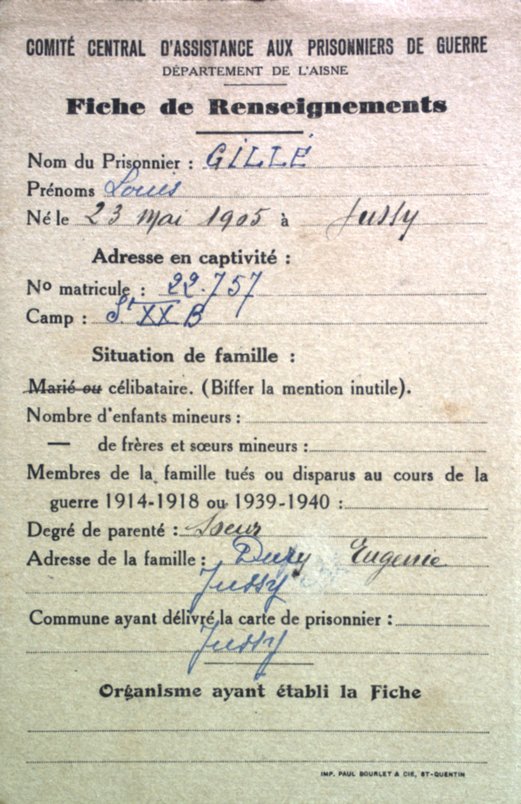 COMITÉ CENTRAL D'ASSISTANCE AUX PRISONNIERS DE GUERRE
DÉPARTEMENT DE L'AISNE
Fiche de Renseignements
Nom du Prisonnier : GILLÉ
Prénoms Louis
Né le 23 mai 1905 à Jussy
Adresse en captivité :
No matricule : 22.757
Camp : St XX B
Situation de famille :
Marié ou célibataire. (Biffer la mention inutile).
Nombre d'enfants mineurs :
— de frères et sœurs mineurs :
Membres de la famille tués ou disparus au cours de la
guerre 1914-1918 ou 1939-1940 :
Degré de parenté : Soeur
Adresse de la famille : Eugenie
Jussy
Commune ayant délivré la carte de prisonnier :
Jussy
Organisme ayant établi la Fiche
IMP. PAUL BOURLET & CIE, ST-QUENTIN